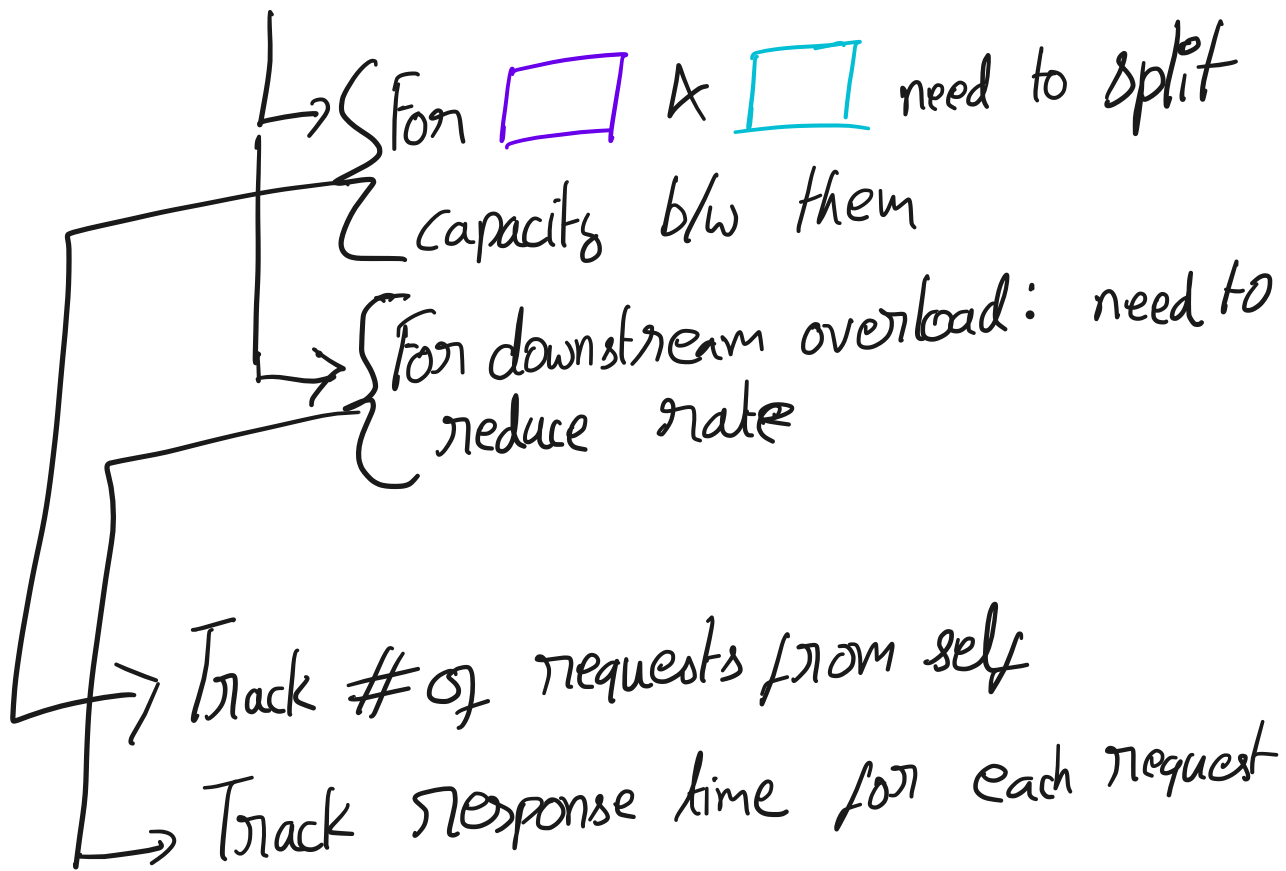 For & need to split
capacity b/w them
For downstream overload: need to
reduce rate
Track # of requests from self
Track response time for each request